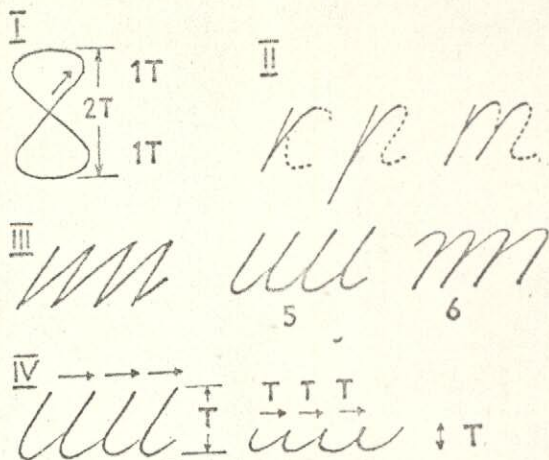 I
1T
2T
1T
II
к р т
III
5
6
IV
T
T T T
T